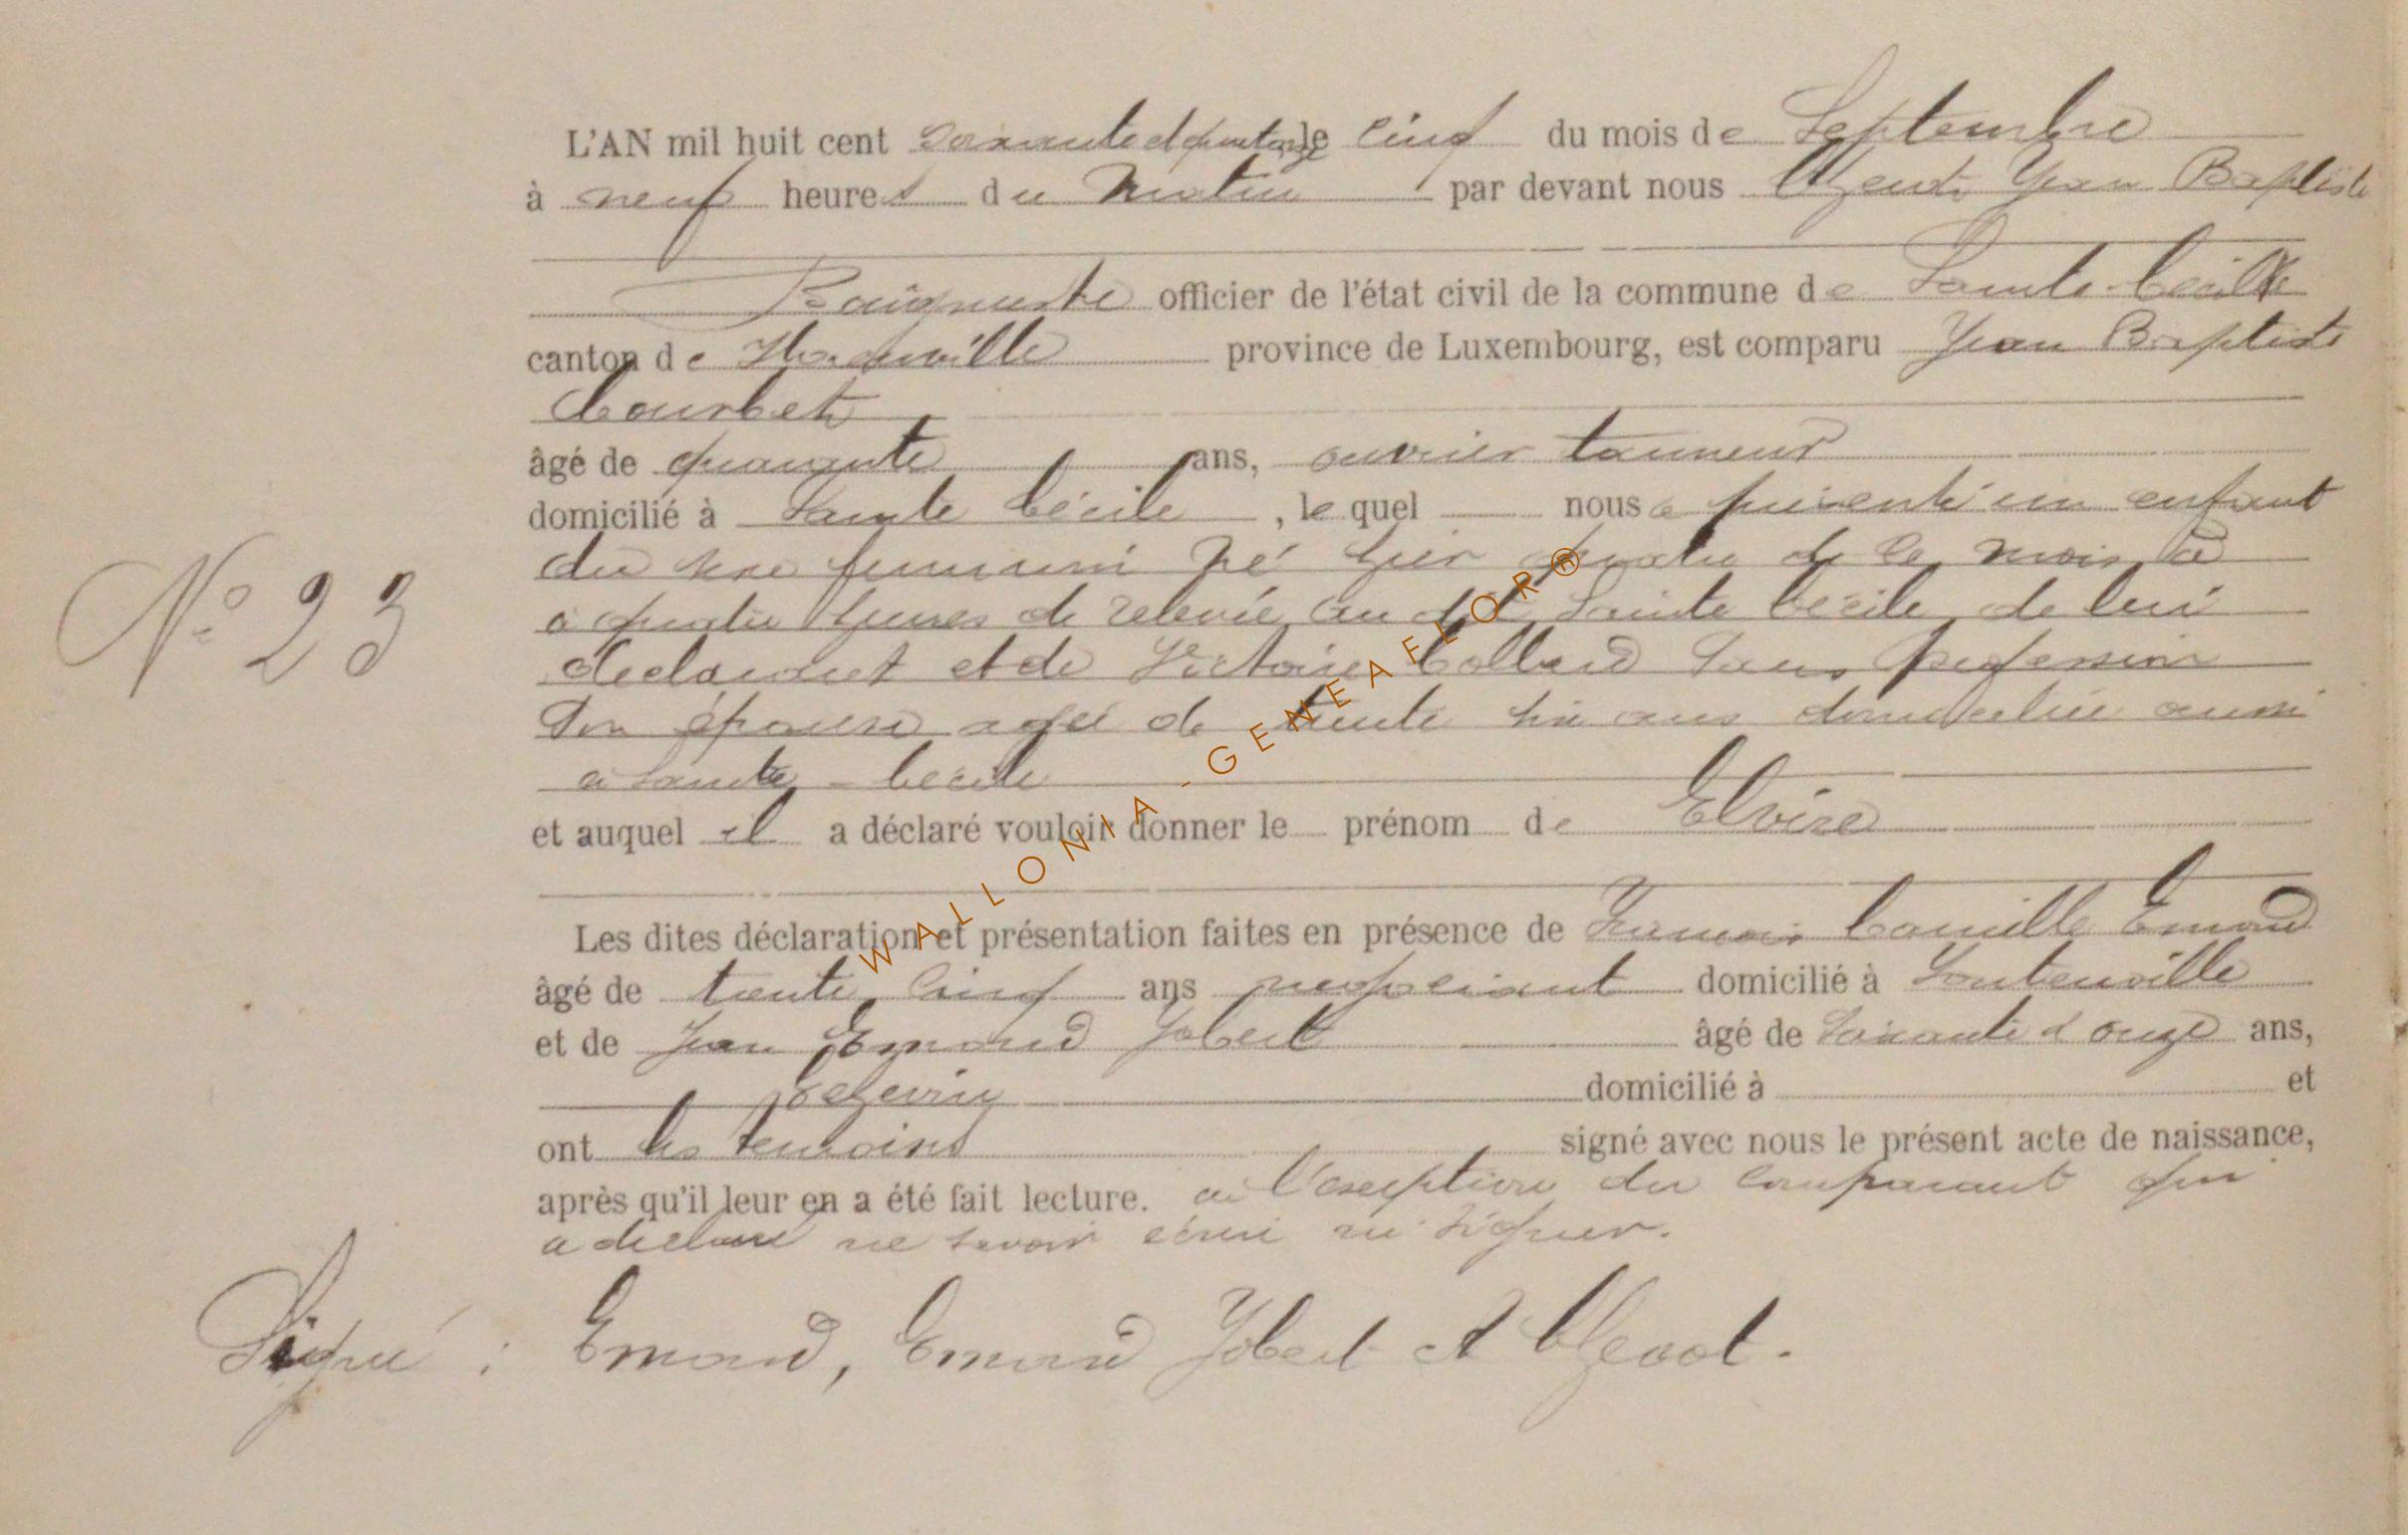 L'AN mil huit cent soixante et quatorze le cinq du mois de Septembre
à neuf heures du Matin par devant nous Jean Baptiste
officier de l'état civil de la commune de Sainte-Cécile
canton de province de Luxembourg, est comparu Jean Baptiste
Courbet
âgé de quarante ans, ouvrier tanneur
domicilié à Sainte Cécile, le quel nous a présenté un enfant
du sexe féminin né hier quatre de ce mois à
à quatre heures de relevée au dit Sainte Cécile de lui
déclarant et de Victoire Collard sans profession
son épouse agée de trente six ans domiciliée aussi
à Sainte-Cécile
et auquel il a déclaré vouloir donner le prénom de Elvire
Les dites déclaration et présentation faites en présence de Camille Emond
âgé de trente cinq ans négociant domicilié à Fontenoille
et de Jean Emond Jobert âgé de soixante et onze ans,
domicilié à et
ont les témoins signé avec nous le présent acte de naissance,
après qu'il leur en a été fait lecture. à l'exception du comparant qui
a déclaré ne savoir écrire ni signer.
Signé : Emond, Emond Jobert et
N° 23
WALLONIA - GENEAFLOR®